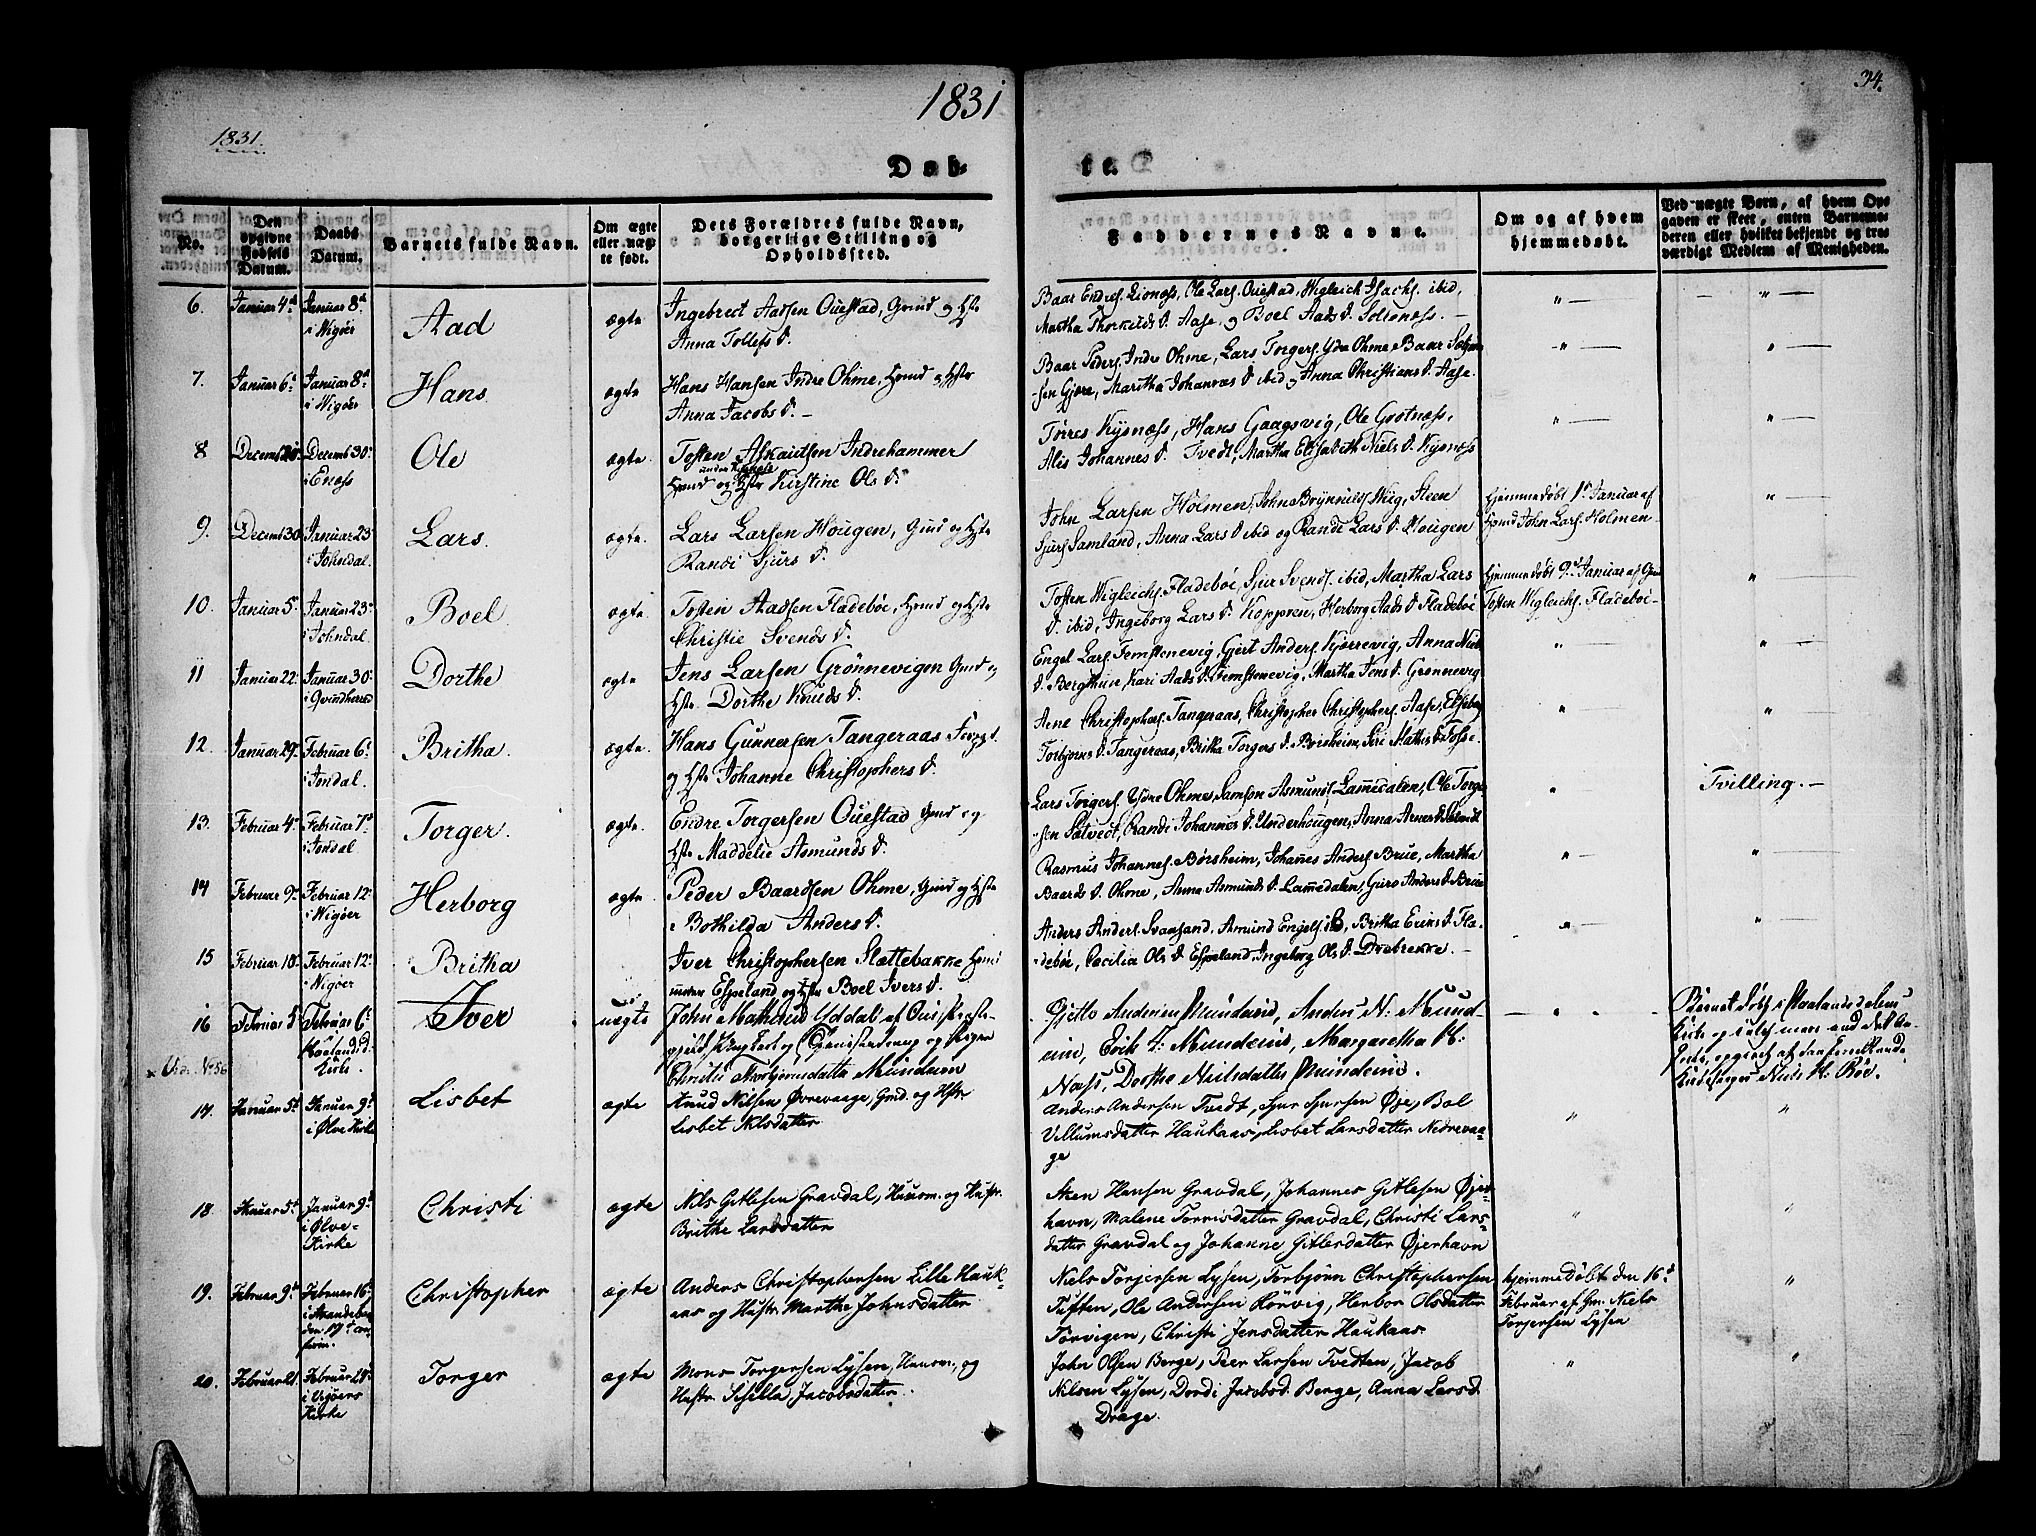 1831
34.
1831.
Døb-
te.
No.
Den opgivne Fødsels Datum.
Daabs Datum.
Barnets fulde Navn.
Om ægte eller uægte født.
Dets Forældres fulde Navn, borgerlige Stilling og Opholdssted.
Faddernes Navne.
Om og af hvem hjemmedøbt.
Ved uægte Børn, af hvem Opgaven er skeet, enten Barnemoderen eller hvilket bekjendt og troværdigt Medlem af Menigheden.
6. Januar 4d Januar 8d Aad ægte Ingebrect Aadsen Ouestad, Gmd og Hstr
i Wigøer Anna Tollefs D.
Baar Endres. Lionæss, Ole Lars. Ouestad, Wigleich Isachs. ibid,
Martha Thorkilds D. Aase, og Boel Aads D. Soltenæss.
7. Januar 6d Januar 8d Hans ægte Hans Hansen Indre Ohme, Hmd og Hstr
i Wigøer Anna Jacobs D.
Baar Peders. Indre Ohme, Lars Torgers. Ydre Ohme, Baar
sen Gjøre, Maritha Johannes D ibid og Anna Christians D. Aase.
8 Decemb Decemb 30 Ole ægte. Tosten Indrehammer
i Enæss Hmd og Hstr Kirstine Ols D.
Tørres Kysnæss, Hans Gaagsvig, Ole Grotnæss,
Alis Johannes D. Tvedt, Martha Elisabeth Niels D. Kysnæss
9. Decemb 30 Januar 23 Lars ægte. Lars Larsen Hougen, Gmd og Hstr
i Johndal. Randi Sjurs D.
John Larsen Holmen, John Brÿnnilds. Wig, Steen
Sjurs. Samland, Anna Lars D ibid og Randi Lars D. Hougen
Hjemmedøbt 1d Januar af
Hmd John Lars. Holmen
10. Januar 5d Januar 23 Boel ægte. Tosten Aadsen Fladebøe, Hmd og Hstr
i Johndal. Christie Svends D.
Tosten Wigleichs. Fladebøe, Sjur Svends. ibid, Martha Lars
D. ibid, Ingeborg Lars D. Koppren, Herborg Aads D. Fladebøe
Hjemmedøbt 9d Januar af Gm
Tosten Wigleichs. Fladebøe
11 Januar 22 Januar 30 Dorthe ægte Jens Larsen Grønnevigen Gmd og
i Qvindherred Hstr. Dorthe Knuds D.
Engel Lars. Femstenevig, Gjert Anders. Kjærrevig, Anna Niels
D. Bergthun, Kari Aads D. Femstenevig, Martha Jens D. Grønnevig
12. Januar 29 Februar 6 Britha ægte. Hans Gunnersen Tangeraas
i Jondal. og Hstr Johanne Christophers D.
Arne Christophers. Tangeraas, Christopher Christophers. Aase,
Torbjørns D. Tangeraas, Britha Torgers D. Børsheim, Siri Mathis D.
13. Februar 4d Februar 7d Torger. ægte. Endre Torgersen Ouestad Gmd og
i Jondal Hstr Maddelie Asmunds D.
Lars Torgers. Ydre Ohme, Samson Asmunds. Lammedalen, Ole Torger
sen Satvedt, Randi Johannes D. Underhougen, Anna Arnes D.
Tvilling.
14 Februar 9 Februar 12 Herborg ægte. Peder Baardsen Ohme, Gmd og Hstr
i Wigøer Bothilda Anders D.
Rasmus Johannes. Børsheim, Johannes Anders. Brue, Martha
Baards D. Ohme, Anna Asmunds D. Lammedalen, Guro Anders D. Brue
15 Februar 10 Februar 12 Britha Iver Christophersen Slettebakke
i Wigøer Espeland og Hstr Boel Ivers D.
Anders Anders. Svaasand, Asmund Engels. ibid, Britha Eriks D. Fla-
debøe, Cæcilia Ols D. Espeland, Ingeborg Ols D. Drebrekke.
16 Februar 5 Februar 6 Iver uægte John Yddal af
i Haalandsd. Kirke og Pigen
Vide No 56 Christie Torbjørnsdatter Mundeim
Gjetle Andersen Mundeim, Anders N. Mund-
eim, Erik T. Mundeim, Margaretha H.
Næss, Dorthe Nielsdatter Mundeim.
Barnet døbt i Haalandsdalens
Kirke og
opgivet af
Niels H. Bøe.
17. Januar 5d Januar 9d Lisbet ægte Knud Nilsen Øvrevaage, Gmd. og Hstr
i Ølve Kirke Lisbet Nilsdatter
Anders Andersen Tvedt, Sjur Sjursen Øje, Bol
Villumsdatter Haukaas, Lisbet Larsdatter Nedrevaa-
ge
18. Januar 5d Januar 9d Christi ægte Nils Gitlesen Gravdal, Huusm. og Hustr.
i Ølve- Brithe Larsdatter
Kirke
Steen Hansen Gravdal, Johannes Gitlesen Øjer-
havn, Malene Torrisdatter Gravdal, Christi Lars-
datter Gravdal og Johanne Gitlesdatter Øjerhavn
19. Februar 9d Februar 16 Christopher ægte Anders Christophersen Lille Hauk-
i Strandebarm aas og Hustr. Marthe Johnsdatter
den 17d
Niels Torjersen Lysen, Torbjørn Christophersen
Tuften, Ole Andersen Hørvig, Herbor Olsdatter
Torvigen, Christi Jensdatter Haukaas.
hjemmedøbt den 16d
Februar af Gm. Niels
Torjersen Lysen
20. Februar 21 Februar 28 Torger ægte Mons Torgersen Lysen, Huusm. og
i Vigøers Hustr. Sisilla Jacobsdatter.
Kirke
John Olsen Berge, Peer Larsen Tvedten, Jacob
Nilsen Lysen, Dordi Jacobsd. Berge, Anna Larsd.
Drage.